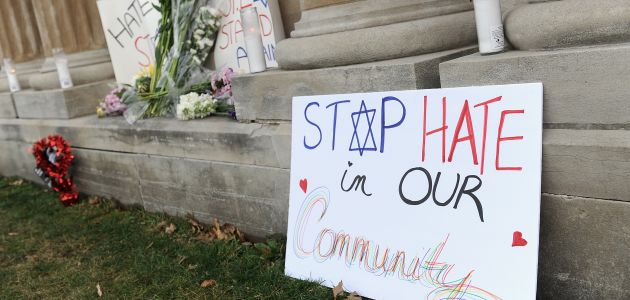 HATE
STAND
STOP HATE
in OUR
Community